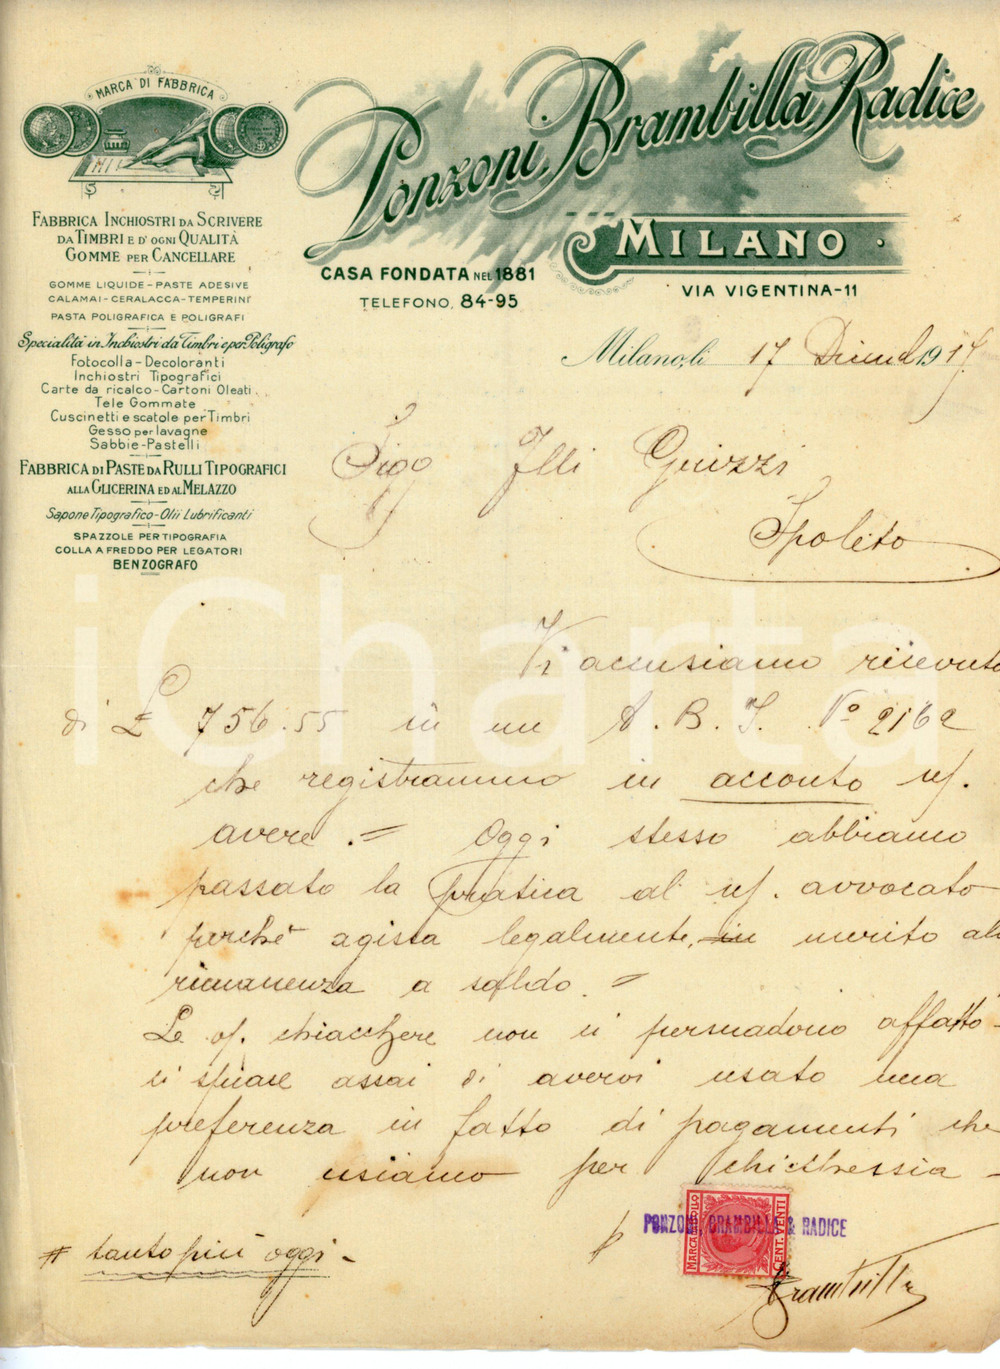 MARCA DI FABBRICA
Ponzoni, Brambilla, Radice
MILANO
CASA FONDATA NEL 1881
TELEFONO, 84-95
VIA VIGENTINA-11
FABBRICA INCHIOSTRI DA SCRIVERE
DA TIMBRI E D'OGNI QUALITÀ
GOMME PER CANCELLARE
GOMME LIQUIDE - PASTE ADESIVE
CALAMAI - CERALACCA - TEMPERINI
PASTA POLIGRAFICA E POLIGRAFI
Specialità in Inchiostri da Timbri e per Poligrafo
Fotocolla - Decoloranti
Inchiostri Tipografici
Carte da ricalco - Cartoni Oleati
Tele Gommate
Cuscinetti e scatole per Timbri
Gesso per lavagne
Sabbie - Pastelli
FABBRICA DI PASTE DA RULLI TIPOGRAFICI
ALLA GLICERINA ED AL MELAZZO
Sapone Tipografico - Olii Lubrificanti
SPAZZOLE PER TIPOGRAFIA
COLLA A FREDDO PER LEGATORI
BENZOGRAFO
Milano, li 17 Dicemb 1917
Sigg Flli Guizzi
Spoleto
Vi accusiamo ricevuta
di £ 756.55 in un A. B. I. N° 2162
che registrammo in acconto ns/.
avere. = Oggi stesso abbiamo
passato la pratica al ns/. avvocato
perchè agissa legalmente, in merito alla
rimanenza a saldo. =
Le vs/. chiacchere non ci persuadono affatto -
ci spiace assai di avervi usato una
preferenza in fatto di pagamenti che
non usiamo per chicchessia -
# tanto più oggi -
p PONZONI, BRAMBILLA & RADICE
MARCA DA BOLLO
CENT. VENTI
Brambilla
iCharta